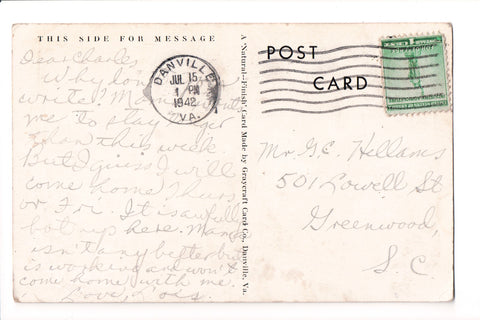 THIS SIDE FOR MESSAGE
Dear Charles,
Why don't you
write? Mama
me to stay
plan this week
But I guess I will
come home Thurs.
or Fri. It is awfully
hot up here.
isn't any better but
is working and won't
come home with me.
Love, Lois
DANVILLE
JUL 15
1 PM
1942
VA.
A "Natural-Finish" Card Made by Graycraft Card Co., Danville, Va.
POST
CARD
Mr. G.E. Hellams
501 Lowell St
Greenwood,
S.C.